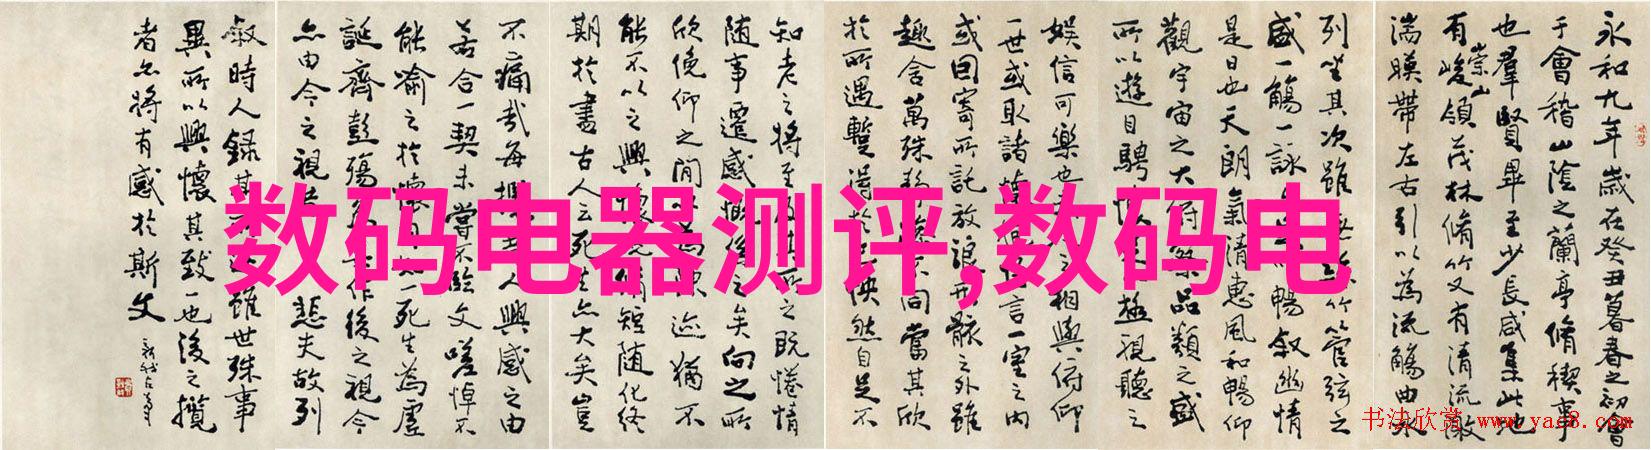 永和九年歲在癸丑暮春之初會
于會稽山陰之蘭亭脩稧事
也羣賢畢至少長咸集此地
有崇山峻領茂林脩竹又有清流激
湍暎帶左右引以為流觴曲水
列坐其次雖無絲竹管弦之
盛一觴一詠暢叙幽情
是日也天朗氣清惠風和暢仰
觀宇宙之大俯察品類之盛
所以遊目騁懷極視聽之
娛信可樂也夫人之相與俯仰
一世或取諸懷言一室之內
或因寄所託放浪形骸之外雖
趣舍萬殊靜不同當其欣
於所遇蹔得於怏然自足不
知老之將至及其所之既惓情
随事遷感慨係之矣向之所
欣俛仰之閒以為陳迹猶不
能不以之興懷況脩短随化終
期於盡古人云死生亦大矣豈
不痛哉每攬人興感之由
若合一契未嘗不臨文嗟悼不
能喻之於懷固知一死生為虛
誕齊彭殤作後之視今
亦由今之視悲夫故列
叙時人録其雖世殊事
異所以興懷其致一也後之攬
者亦將有感於斯文
数码电器测评,数码电
书法欣赏 www.yac8.com